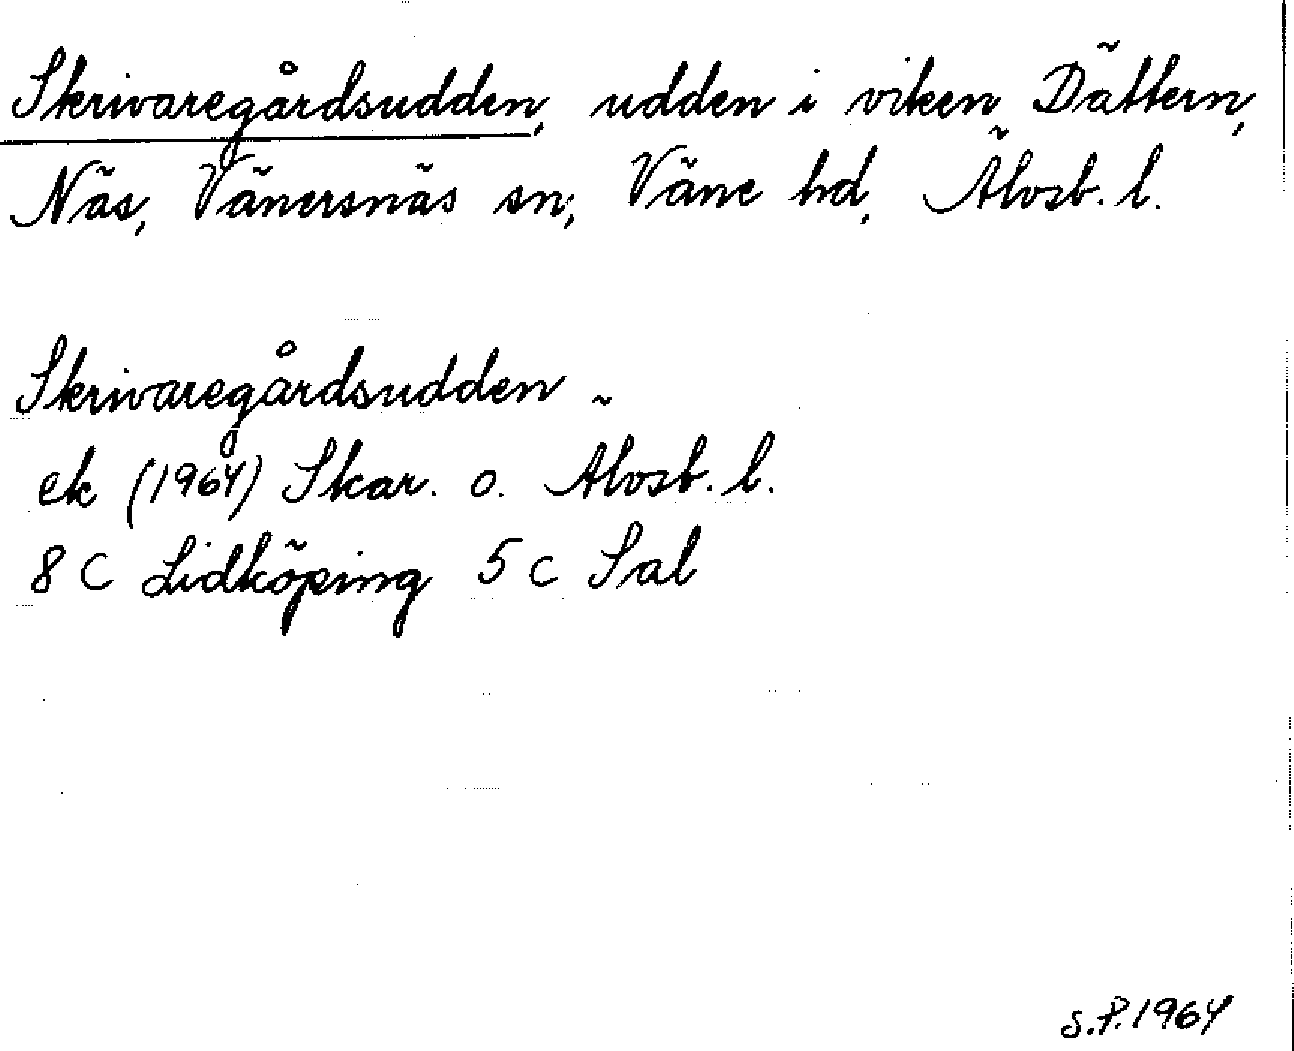 Skrivaregårdsudden, udden i viken Dättern,
Näs, Vänersnäs sn, Väne hd, Älvsb. l.
Skrivaregårdsudden
ek (1964) Skar. o. Älvsb. l.
8 C Lidköping 5 c Sal
S.P. 1964